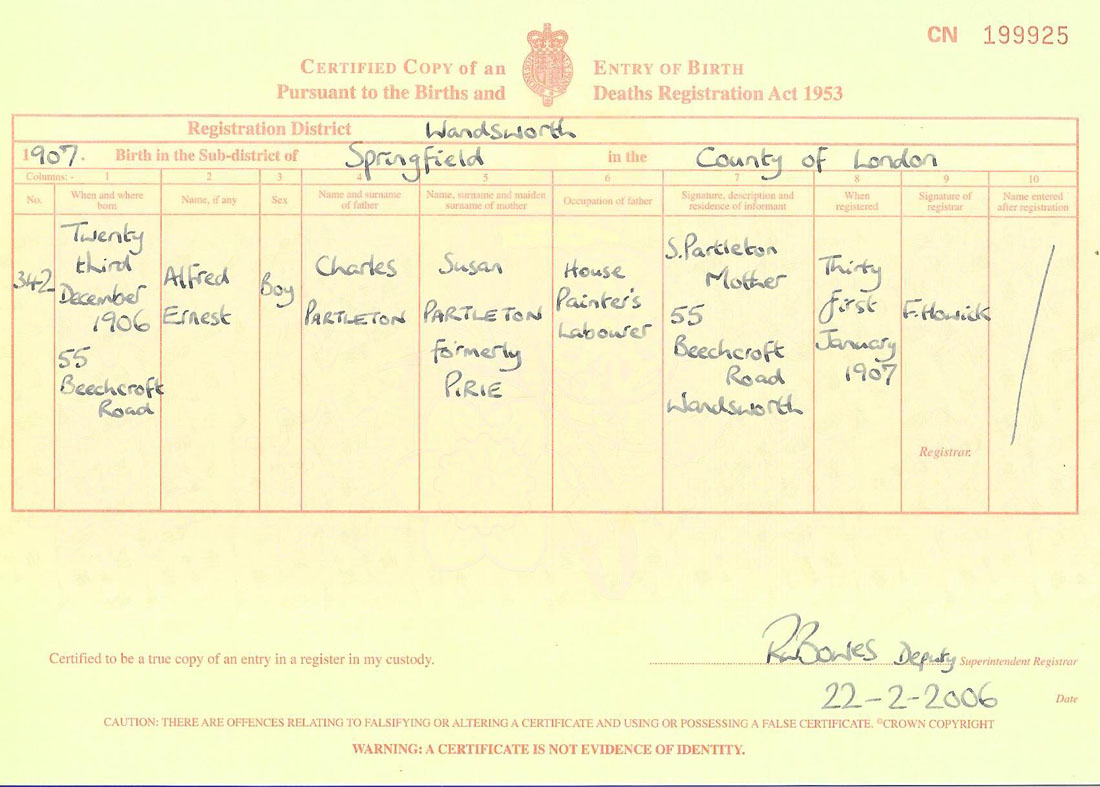 CN 199925
CERTIFIED COPY of an ENTRY OF BIRTH
Pursuant to the Births and Deaths Registration Act 1953
Registration District Wandsworth
1907. Birth in the Sub-district of Springfield in the County of London
Columns: - 1 2 3 4 5 6 7 8 9 10
No.
When and where
born
Name, if any
Sex
Name and surname
of father
Name, surname and maiden
surname of mother
Occupation of father
Signature, description and
residence of informant
When
registered
Signature of
registrar
Name entered
after registration
342
Twenty
third
December
1906
55
Beechcroft
Road
Alfred
Ernest
Boy
Charles
PARTLETON
Susan
PARTLETON
formerly
PIRIE
House
Painter's
Labourer
S. Partleton
Mother
55
Beechcroft
Road
Wandsworth
Thirty
first
January
1907
F. Howick
Registrar.
Certified to be a true copy of an entry in a register in my custody.
Bowes Deputy Superintendent Registrar
22-2-2006 Date
CAUTION: THERE ARE OFFENCES RELATING TO FALSIFYING OR ALTERING A CERTIFICATE AND USING OR POSSESSING A FALSE CERTIFICATE. ©CROWN COPYRIGHT
WARNING: A CERTIFICATE IS NOT EVIDENCE OF IDENTITY.